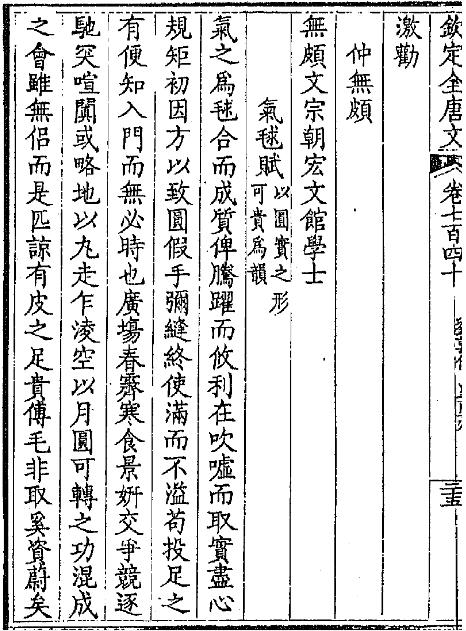 欽定全唐文 卷七百四十
激勸
仲無頗
無頗文宗朝宏文館學士
氣毬賦 以圓實之形
可貴爲韻
氣之爲毬合而成質俾騰躍而攸利在吹噓而取實盡心
規矩初因方以致圓假手彌縫終使滿而不溢苟投足之
有便知入門而無必時也廣塲春霽寒食景妍交爭競逐
馳突喧闐或略地以丸走乍淩空以月圓可轉之功混成
之會雖無侣而是匹諒有皮之足貴傅毛非取奚資蔚矣